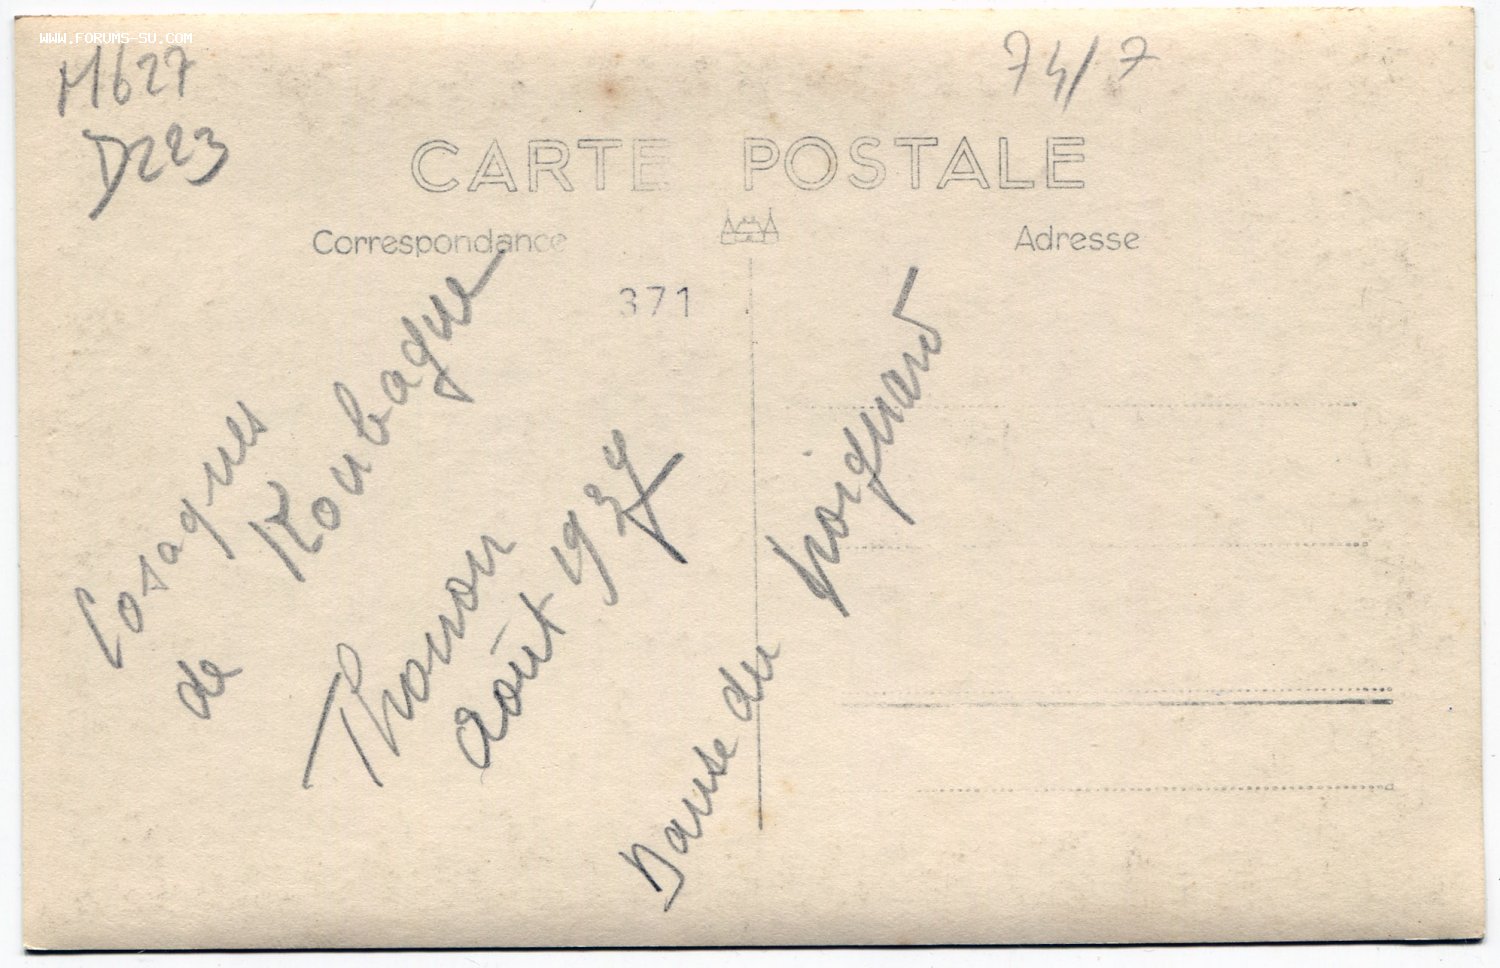 WWW.FORUMS-SU.COM
M627
D223
74/7
CARTE POSTALE
Correspondance
Adresse
371
Cosaques
de Koubague
Thonon
août 1937
Danse du poignard